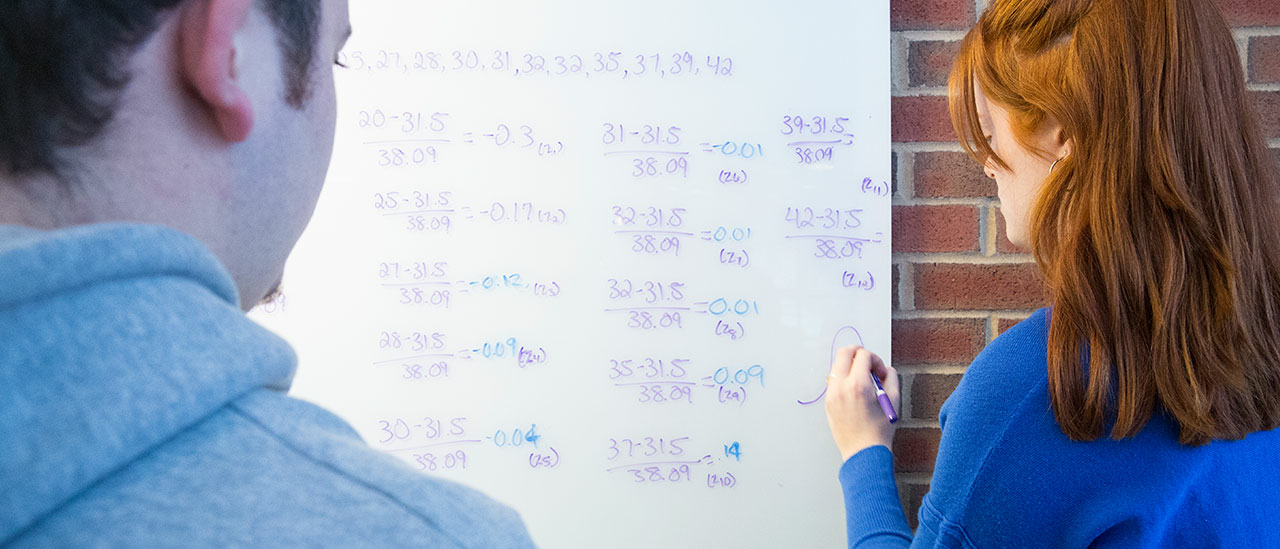 25, 27, 28, 30, 31, 32, 32, 35, 37, 39, 42
20-31.5
38.09
= -0.3 (z₁)
25-31.5
38.09
= -0.17 (z₂)
27-31.5
38.09
= -0.12 (z₃)
28-31.5
38.09
= -0.09 (z₄)
30-31.5
38.09
-0.04
(z₅)
31-31.5
38.09
= -0.01
(z₆)
32-31.5
38.09
= 0.01
(z₇)
32-31.5
38.09
= 0.01
(z₈)
35-31.5
38.09
= 0.09
(z₉)
37-31.5
38.09
= .14
(z₁₀)
39-31.5
38.09
=
(z₁₁)
42-31.5
38.09
=
(z₁₂)